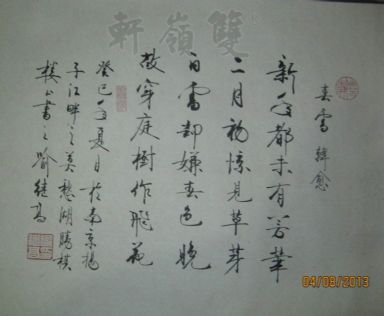 雙嶺軒
春雪 韓愈
新年都未有芳華
二月初惊見草芽
白雪却嫌春色晚
故穿庭樹作飛花
癸巳年夏月於南京揚
子江畔之莫愁湖勝棋
樓山書之
04/08/2013